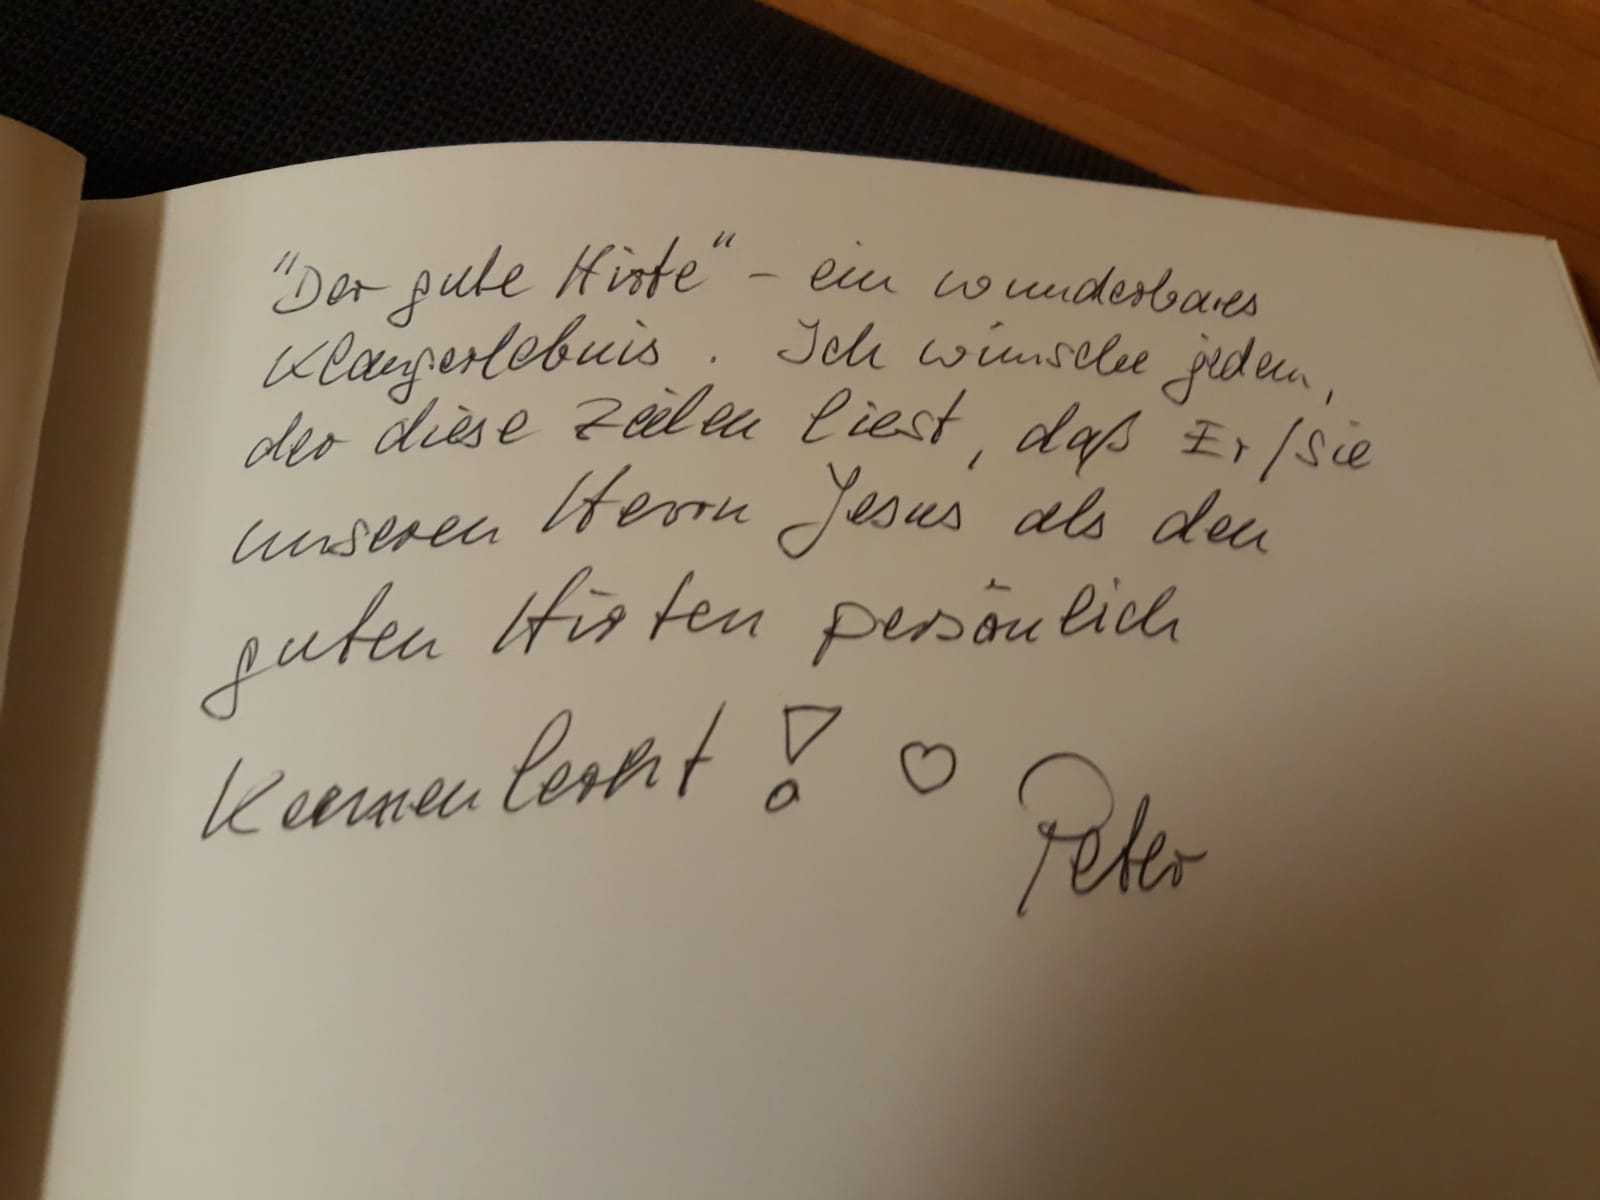 "Der gute Hirte" - ein wunderbares
Klangerlebnis. Ich wünsche jedem,
der diese Zeilen liest, daß Er/Sie
unseren Herrn Jesus als den
guten Hirten persönlich
Kennenlernt! ♡ Peter